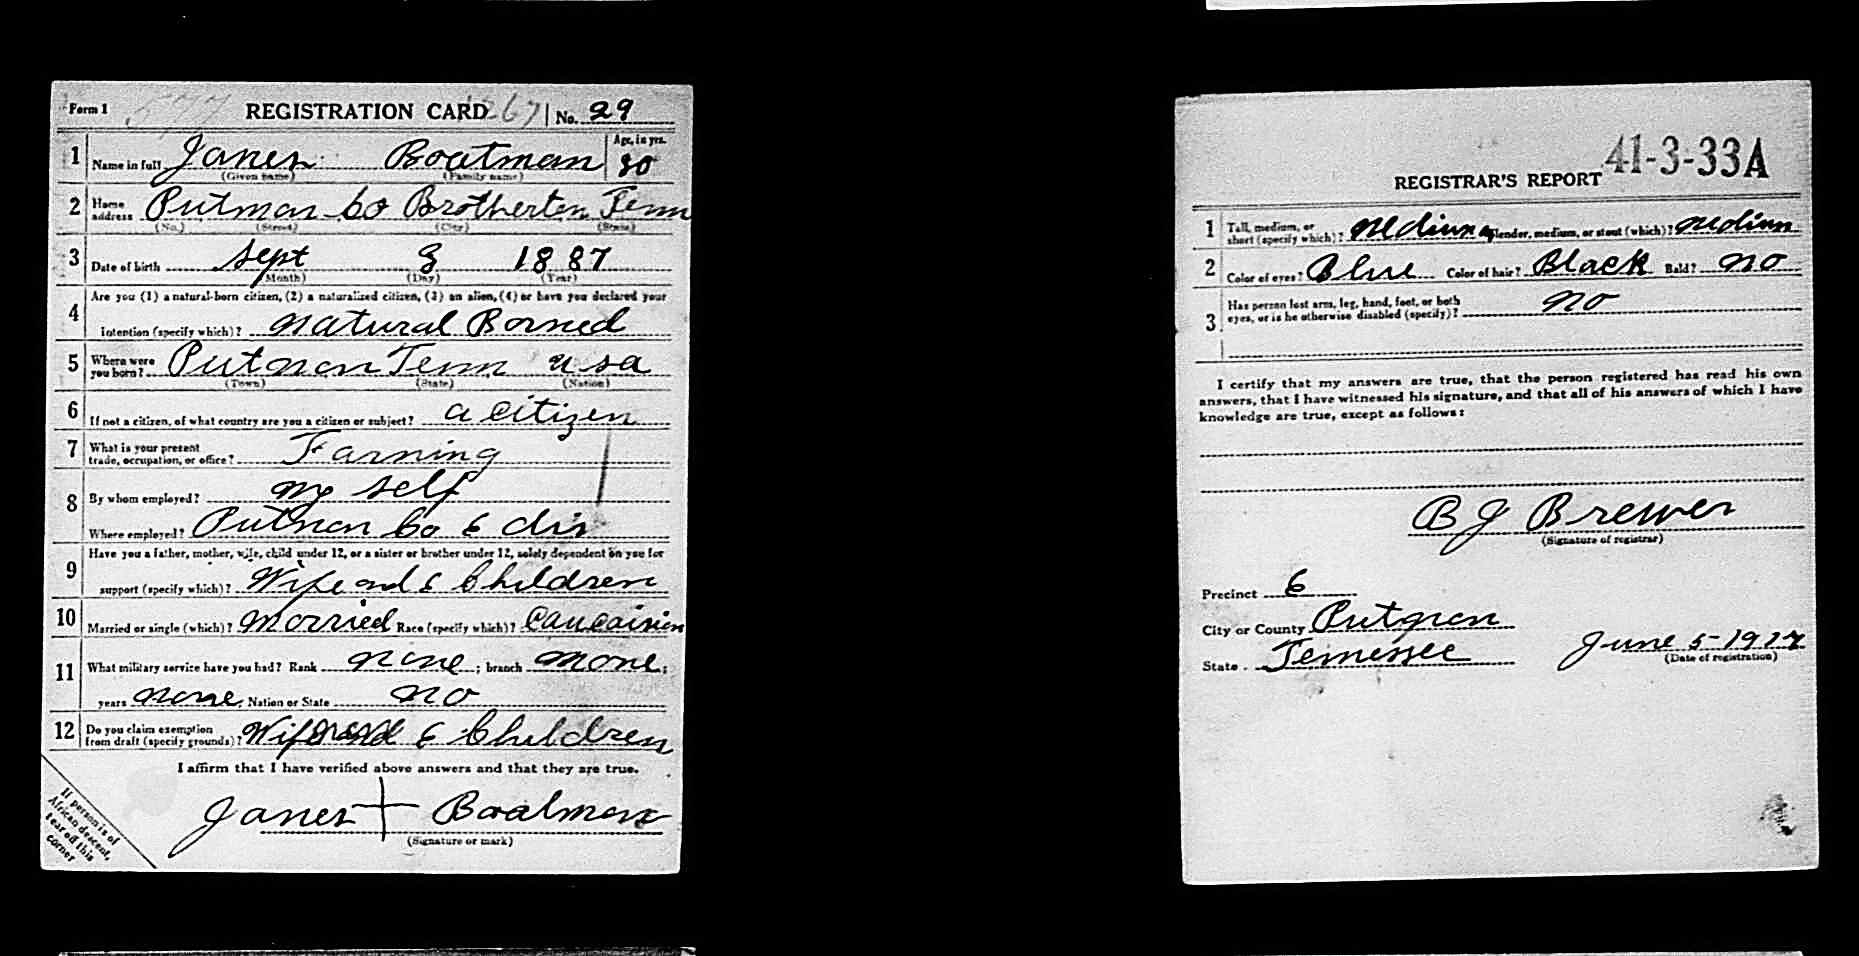 Form 1 577 REGISTRATION CARD 267 No. 29
1 Name in full James Boatman Age, in yrs. 30
(Given name) (Family name)
2 Home address Putman Co Brotherton Tenn
(No.) (Street) (City) (State)
3 Date of birth Sept 8 1887
(Month) (Day) (Year)
4 Are you (1) a natural-born citizen, (2) a naturalized citizen, (3) an alien, (4) or have you declared your
intention (specify which)? Natural Borned
5 Where were you born? Putnan Tenn usa
(Town) (State) (Nation)
6 If not a citizen, of what country are you a citizen or subject? a citizen
7 What is your present trade, occupation, or office? Farming
8 By whom employed? my self
Where employed? Putnan Co 6 dis
9 Have you a father, mother, wife, child under 12, or a sister or brother under 12, solely dependent on you for
support (specify which)? Wife and 6 Children
10 Married or single (which)? Married Race (specify which)? Caucaisien
11 What military service have you had? Rank none ; branch none ;
years none Nation or State no
12 Do you claim exemption from draft (specify grounds)? Wife and 6 Children
I affirm that I have verified above answers and that they are true.
James + Boatman
(Signature or mark)
If person is of
African descent,
tear off this
corner
41-3-33A
REGISTRAR'S REPORT
1 Tall, medium, or short (specify which)? Medium Slender, medium, or stout (which)? Medium
2 Color of eyes? Blue Color of hair? Black Bald? no
3 Has person lost arm, leg, hand, foot, or both
eyes, or is he otherwise disabled (specify)? no
I certify that my answers are true, that the person registered has read his own
answers, that I have witnessed his signature, and that all of his answers of which I have
knowledge are true, except as follows:
B J Brewer
(Signature of registrar)
Precinct 6
City or County Putnan
State Tennessee June 5-1917
(Date of registration)